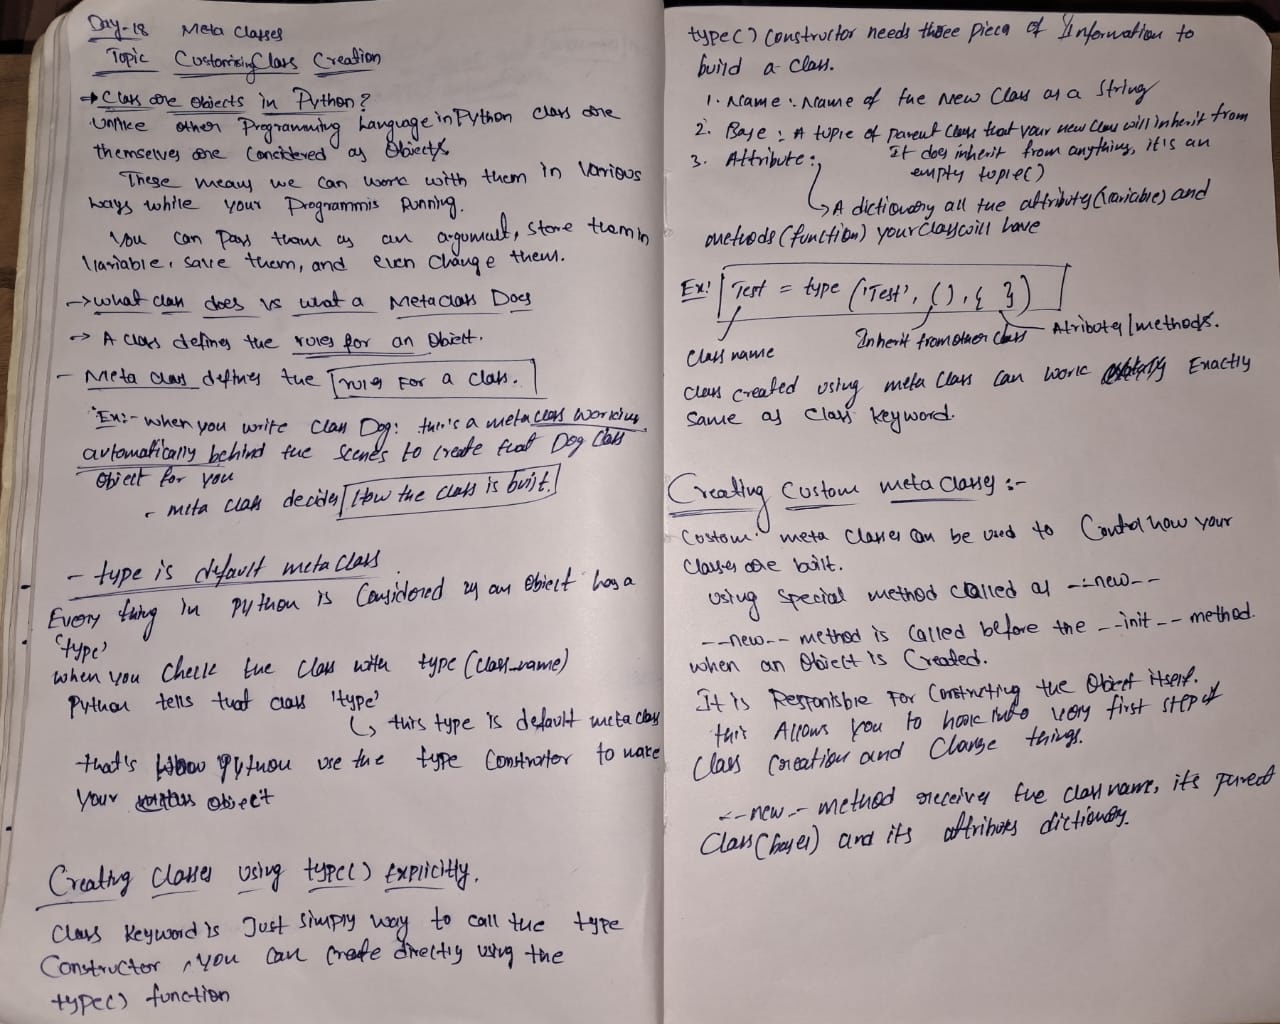 Day-18 Meta Classes
Topic Customizing Class Creation
→ Class are objects in Python?
Unlike other Programming Language in Python class are
themselves are Considered as Objects
These means we can work with them in various
ways while your Programmis Running.
You can Pass them as an argument, store them in
Variable, save them, and even change them.
→ what class does vs what a Metaclass Does
→ A class defines the rules for an Object.
- Meta class defines the rules For a class.
Ex:- when you write class Dog: there's a metaclass working
automatically behind the scenes to create that Dog class
Object for you
- meta class decides How the class is built.
- type is default meta class.
Every thing in python is Considered as an Object has a
'type'
when you Check the class with type (class_name)
Python tells that class 'type'
↳ this type is default meta class
that's how Python use the type Constructor to make
your object
Creating Classes using type() Explicitly.
Class Keyword is Just simply way to call the type
Constructor, you can create directly using the
type() function
type() constructor needs three piece of Information to
build a class.
1. Name : Name of the New Class as a String
2. Base : A tuple of parent class that your new class will inherit from
It does inherit from anything, it's an
empty tuple()
3. Attribute :
↳ A dictionary all the attributes (variable) and
methods (function) your class will have
Ex: Test = type ('Test', (), { })
Class name
Inherit from other class
Atributes/methods.
Class created using meta class can work Exactly
Same as Class keyword.
Creating Custom meta classes :-
Custom meta classes can be used to Control how your
classes are built.
using special method called as __new__
__new__ method is called before the __init__ method.
when an Object is Created.
It is Responsible For Constructing the Object itself.
this Allows you to hook into very first step of
Class Creation and Change things.
__new__ method receives the class name, its parent
Class (bases) and its attributes dictionary.